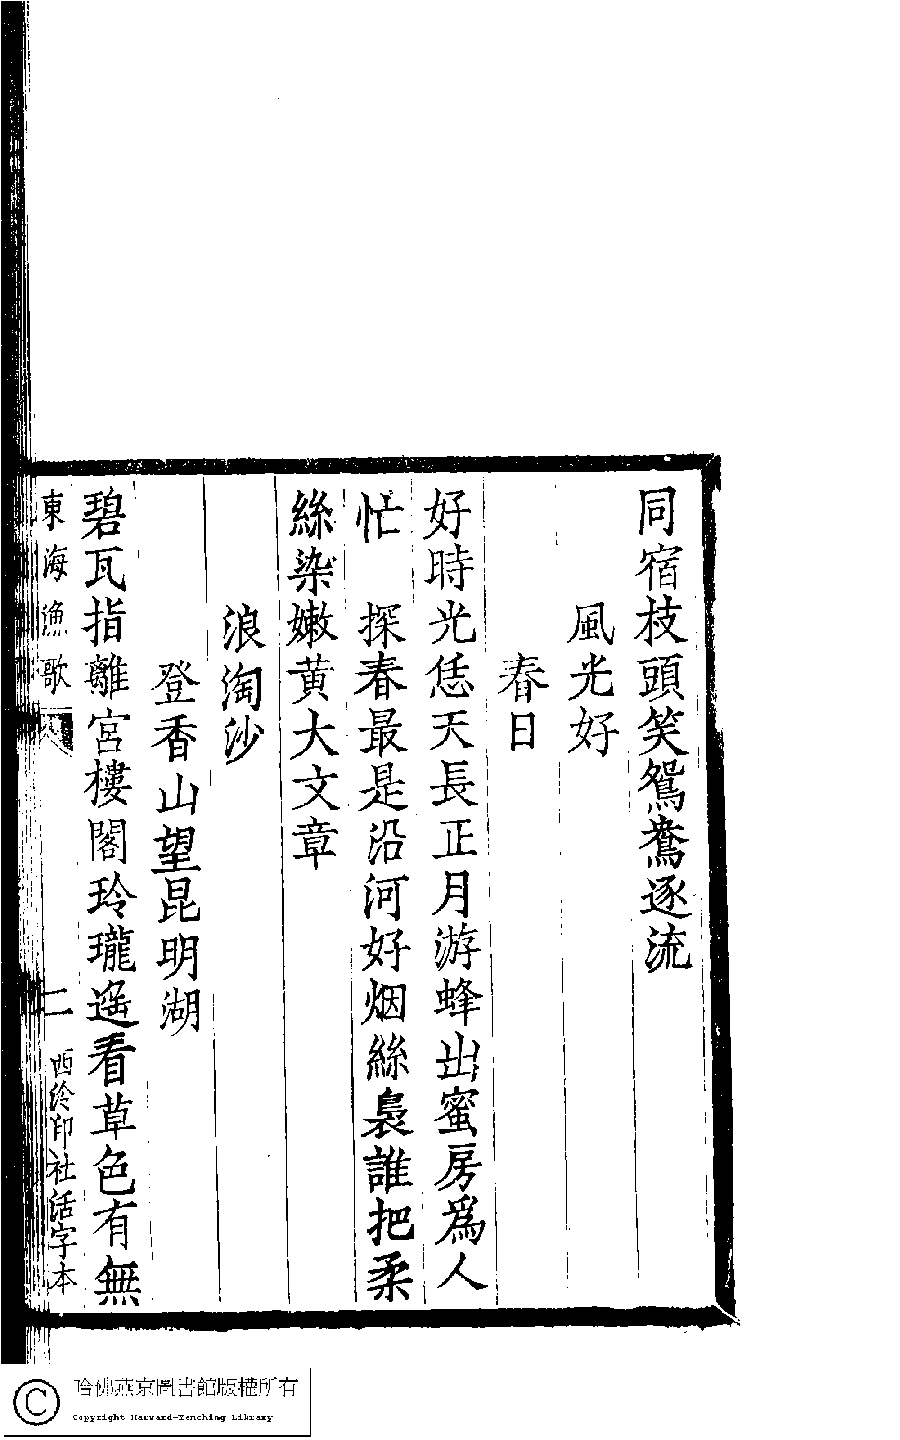 同宿枝頭笑鴛鴦逐流
風光好
春日
好時光恁天長正月游蜂出蜜房爲人
忙　探春最是沿河好烟絲裊誰把柔
絲染嫩黃大文章
浪淘沙
登香山望昆明湖
碧瓦指離宮樓閣玲瓏遥看草色有無
東海漁歌　二　西泠印社活字本
哈佛燕京圖書館版權所有
Copyright Harvard-Yenching Library